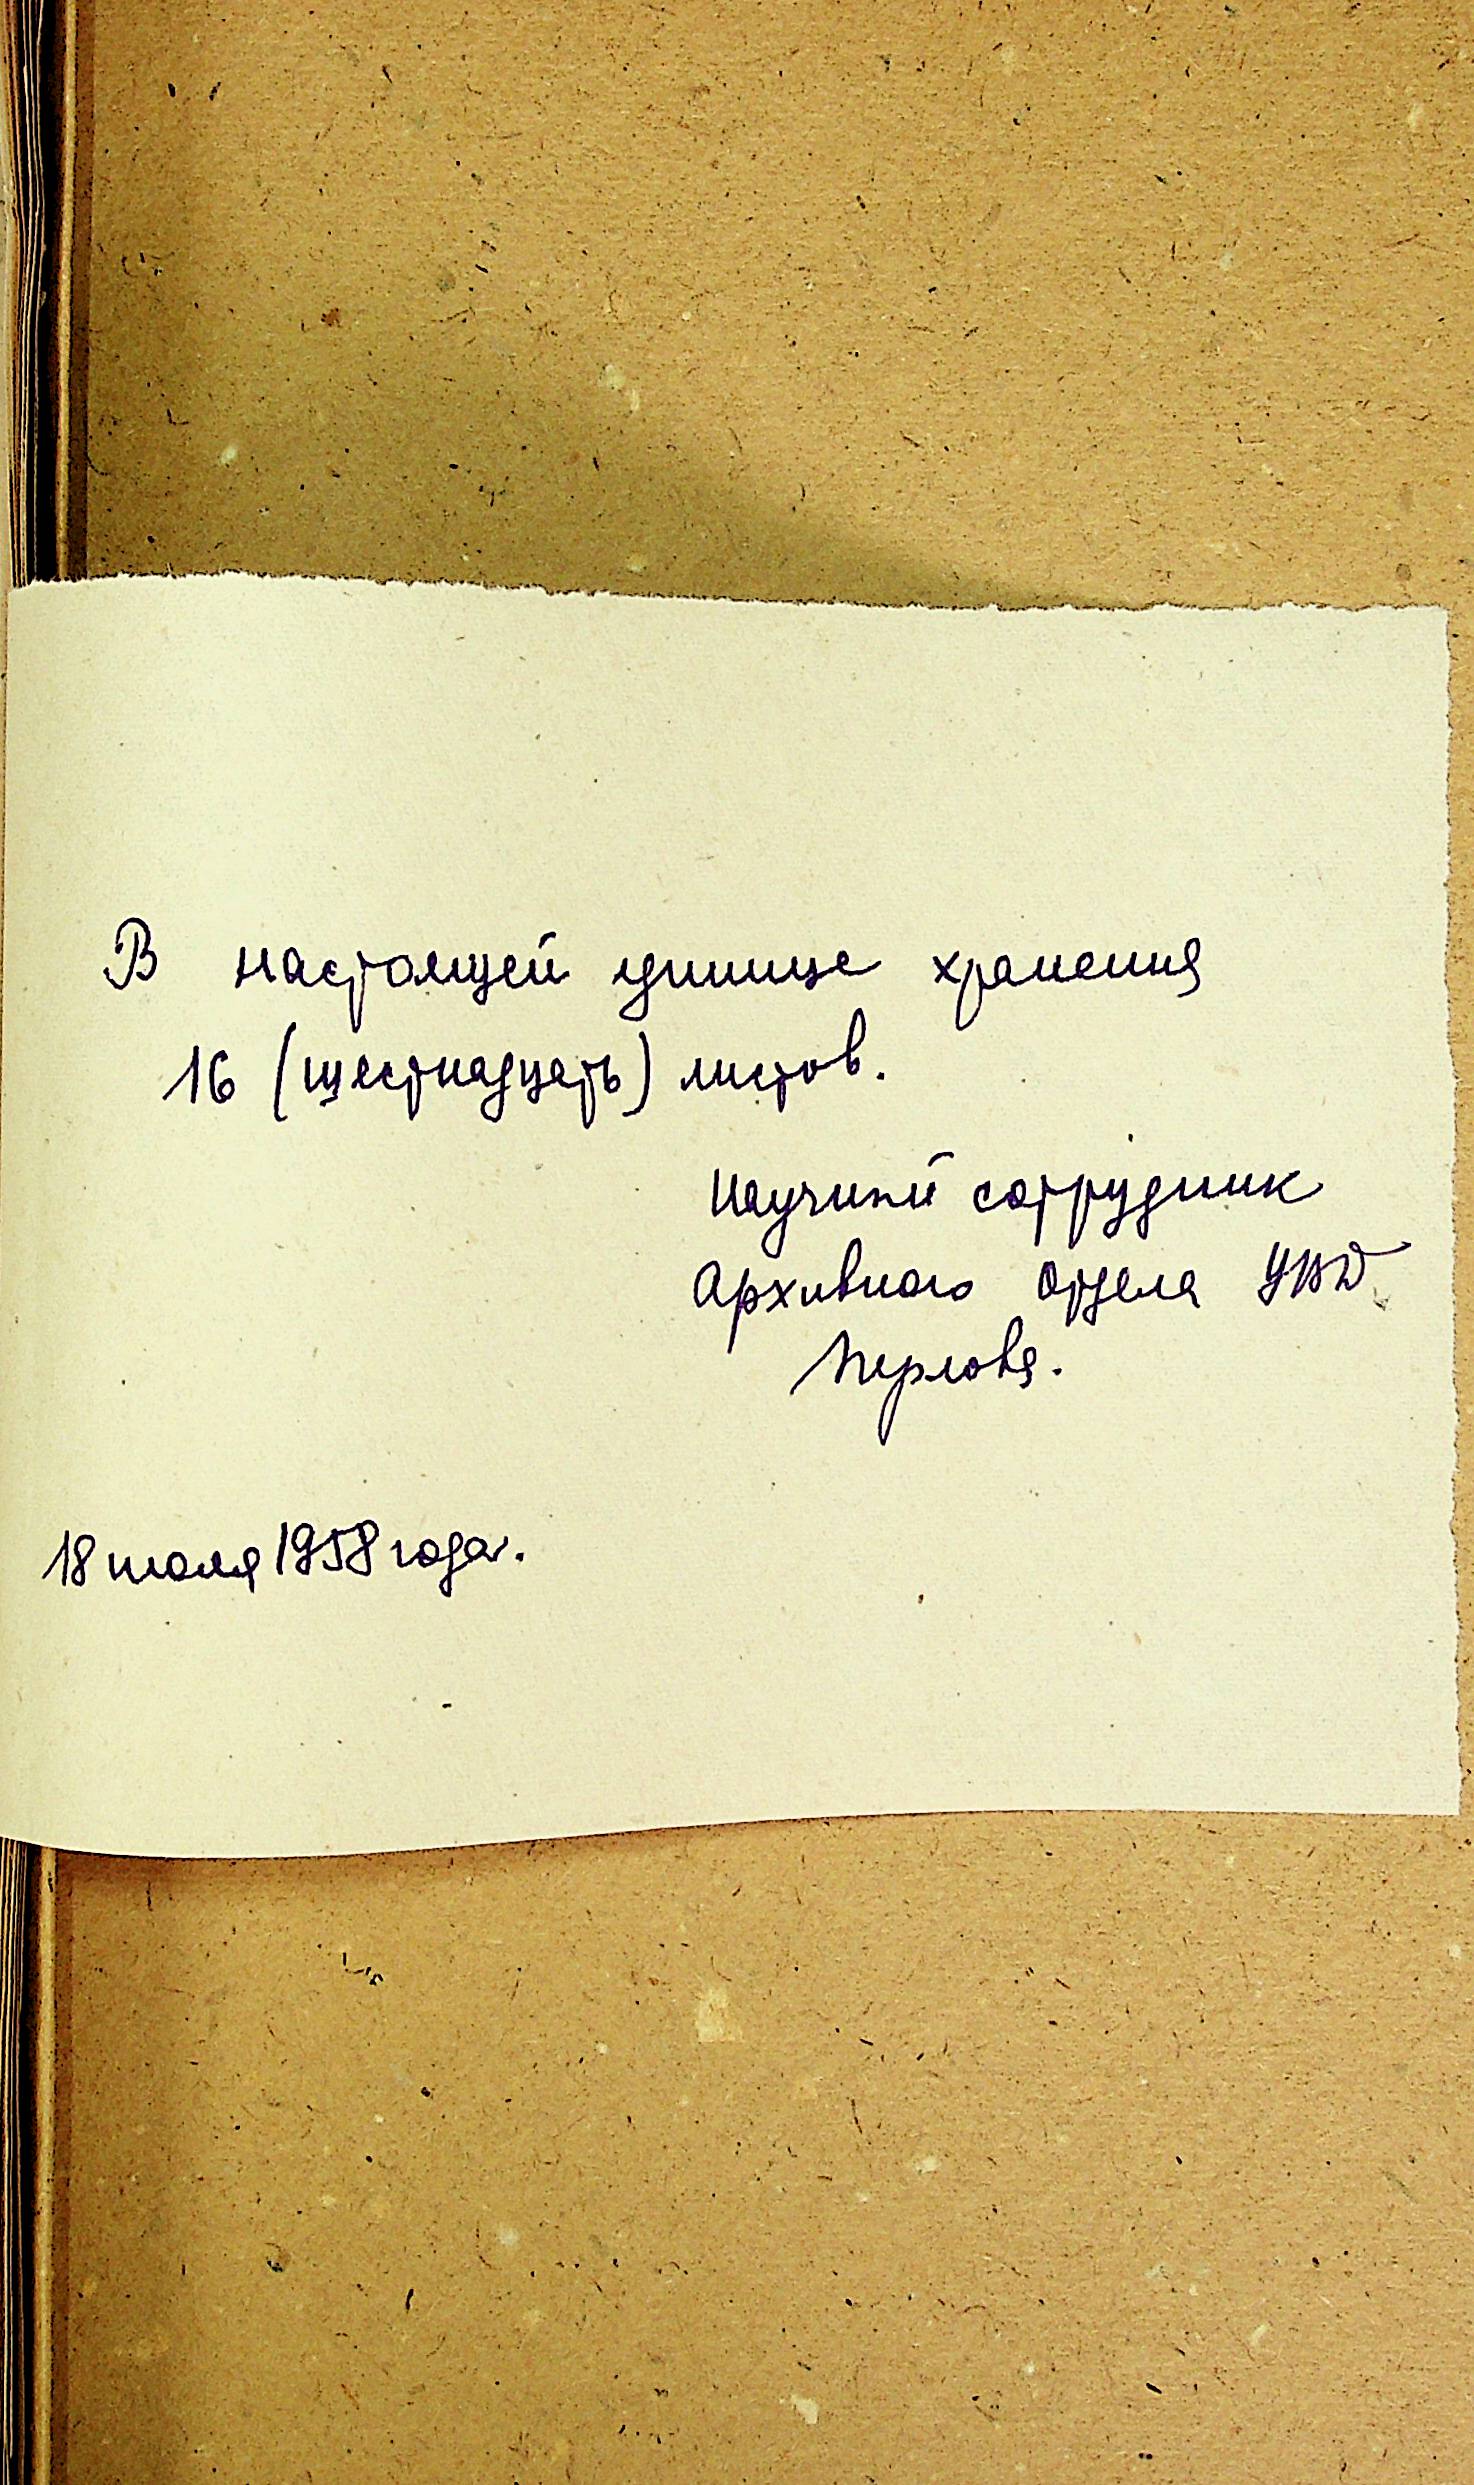 В настоящей единице хранения
16 (шестнадцать) листов.
Научный сотрудник
Архивного отдела УВД
18 июля 1958 года.